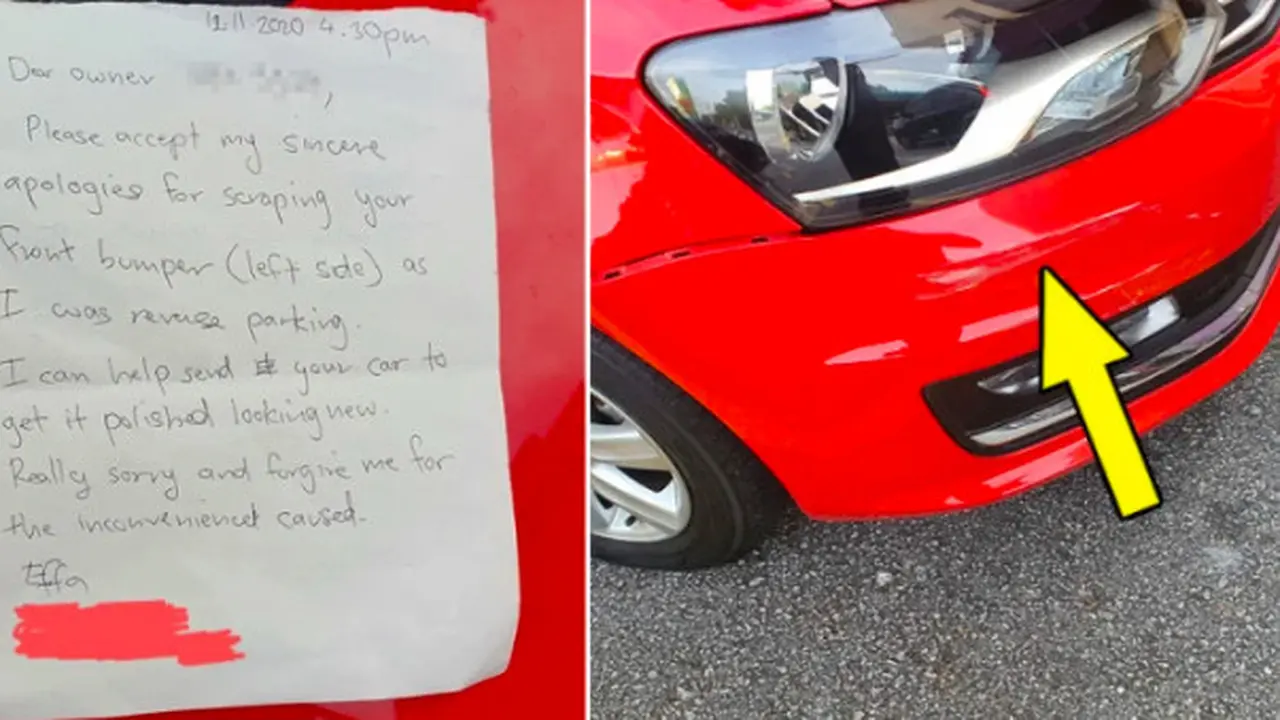 12.11.2020 4.30pm
Dear owner ,
Please accept my sincere
apologies for scraping your
front bumper (left side) as
I was reverse parking.
I can help send your car to
get it polished looking new.
Really sorry and forgive me for
the inconvenienct caused.
Effa